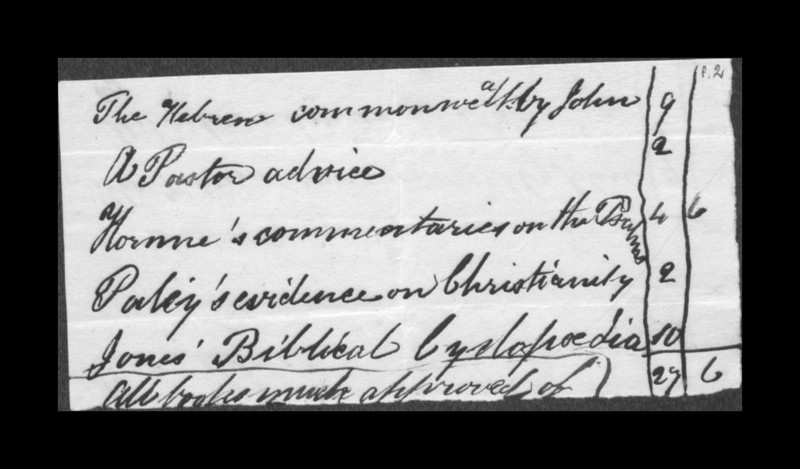 P.2
The Hebrew commonwealth by John 9
A Pastor advice 2
Hornne's commentaries on the Psalms 4 6
Paley's evidence on Christianity 2
Jones' Biblical Cyclopœdia 10
All books much approved of 27 6